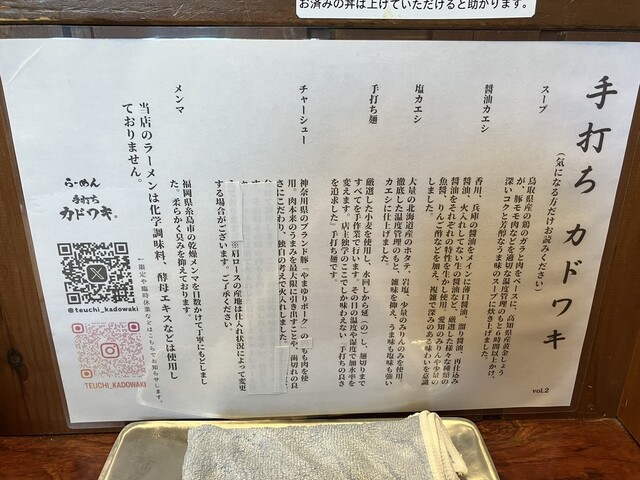 お済みの丼は上げていただけると助かります。
手打ち カドワキ
(気になる方だけお読みください)
スープ
鳥取県産の鶏のガラと肉をベースに、高知県産黄金しょう
が、豚モモ肉などを適切な温度管理のもと6時間以上かけ、
深いコクと芳醇なうま味のスープに炊き上げました。
醤油カエシ
香川、兵庫の醤油をメインに薄口醤油、溜り醤油、再仕込み
醤油、火入れしてない生の醤油など、厳選した様々な種類の
醤油をそれぞれの特性を生かし使用。愛知のみりんや少量の
魚醤、りんご酢などを加え、複雑で深みのある味わいを意識
しました。
塩カエシ
大量の北海道産のホタテ、岩塩、少量のみりんのみを使用。
徹底した温度管理のもと、雑味を抑え、うま味も塩味も強い
カエシに仕上げました。
手打ち麺
厳選した小麦を使用し、水回しから延(の)し、麺切りまで
すべてを手作業で行います。その日の温度や湿度で加水率を
変えます。店主独学のここでしか味わえない「手打ちの良さ
を追求した」手打ち麺です。
チャーシュー
神奈川県のブランド豚『やまゆりポーク』の もも肉を使
用。肉本来のうまみを最大限に引き出すことや、歯切れの良
さにこだわり、独自の考えで火入れしました。
※肩ロースの産地は仕入れ状況によって変更
する場合がございます。ご了承ください。
メンマ
福岡県糸島市の乾燥メンマを日数かけて丁寧にもどしまし
た。柔らかく臭みを抑えております。
当店のラーメンは化学調味料、酵母エキスなどは使用し
ておりません。
らーめん
手打ち
カドワキ
@teuchi_kadowaki
TEUCHI_KADOWAKI
←限定や臨時休業などはこちらでお知らせします。
vol.2